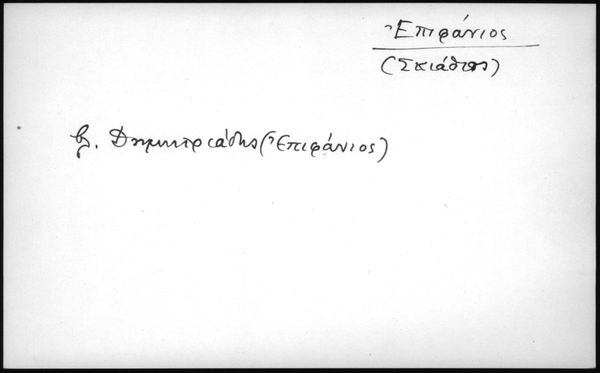 Ἐπιφάνιος
(Σκιάθος)
βλ. Δημητριάδης (Ἐπιφάνιος)